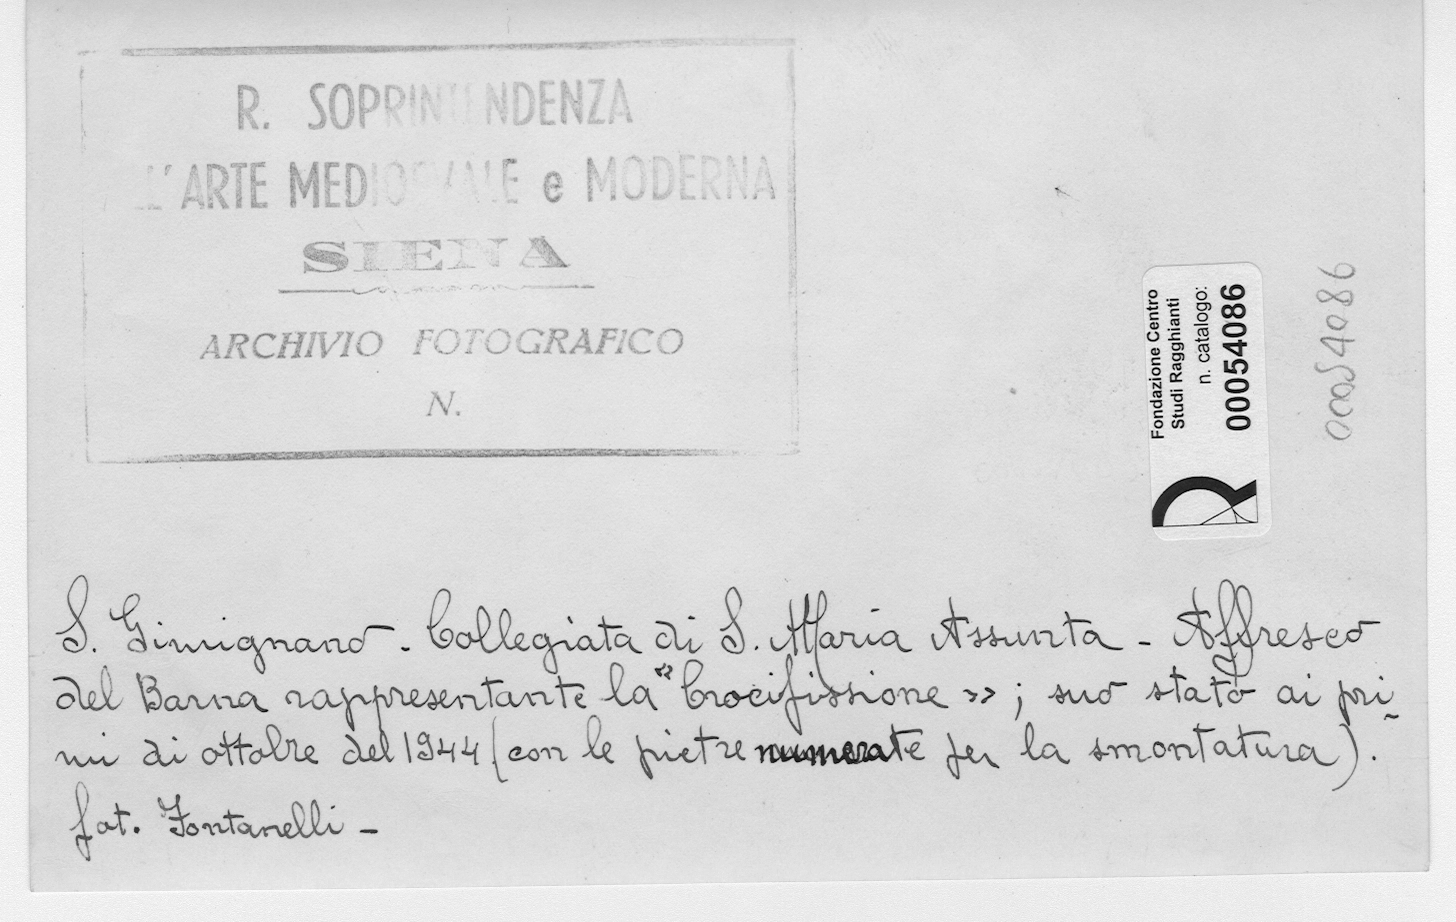 R. SOPRINTENDENZA
LL'ARTE MEDIOEVALE e MODERNA
SIENA
ARCHIVIO FOTOGRAFICO
N.
Fondazione Centro
Studi Ragghianti
n. catalogo:
00054086
00054086
S. Gimignano - Collegiata di S. Maria Assunta - Affresco
del Barna rappresentante la "Crocifissione »; suo stato ai pri-
mi di ottobre del 1944 (con le pietre numerate per la smontatura).
fot. Fontanelli -